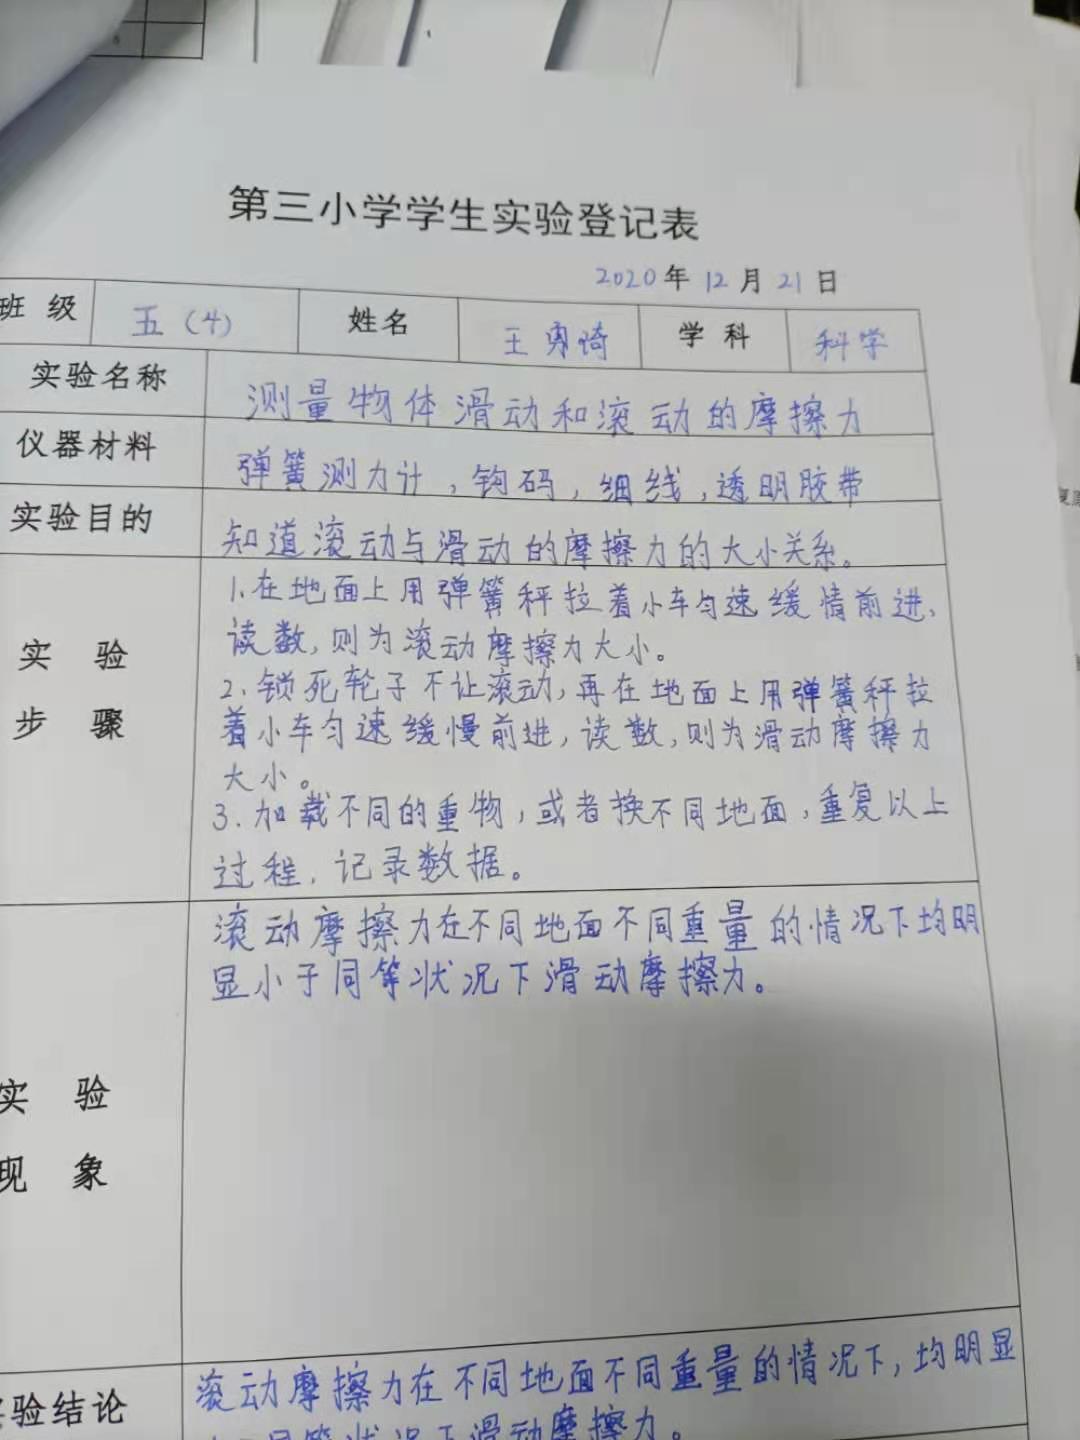 第三小学学生实验登记表
2020年12月21日
班级 五(4) 姓名 王勇琦 学科 科学
实验名称 测量物体滑动和滚动的摩擦力
仪器材料 弹簧测力计,钩码,细线,透明胶带
实验目的 知道滚动与滑动的摩擦力的大小关系。
实验步骤
1.在地面上用弹簧秤拉着小车匀速缓情前进,
读数,则为滚动摩擦力大小。
2.锁死轮子不让滚动,再在地面上用弹簧秤拉
着小车匀速缓慢前进,读数,则为滑动摩擦力
大小。
3.加载不同的重物,或者换不同地面,重复以上
过程,记录数据。
实验现象
滚动摩擦力在不同地面不同重量的情况下均明
显小于同等状况下滑动摩擦力。
实验结论
滚动摩擦力在不同地面不同重量的情况下,均明显
同等状况下滑动摩擦力。